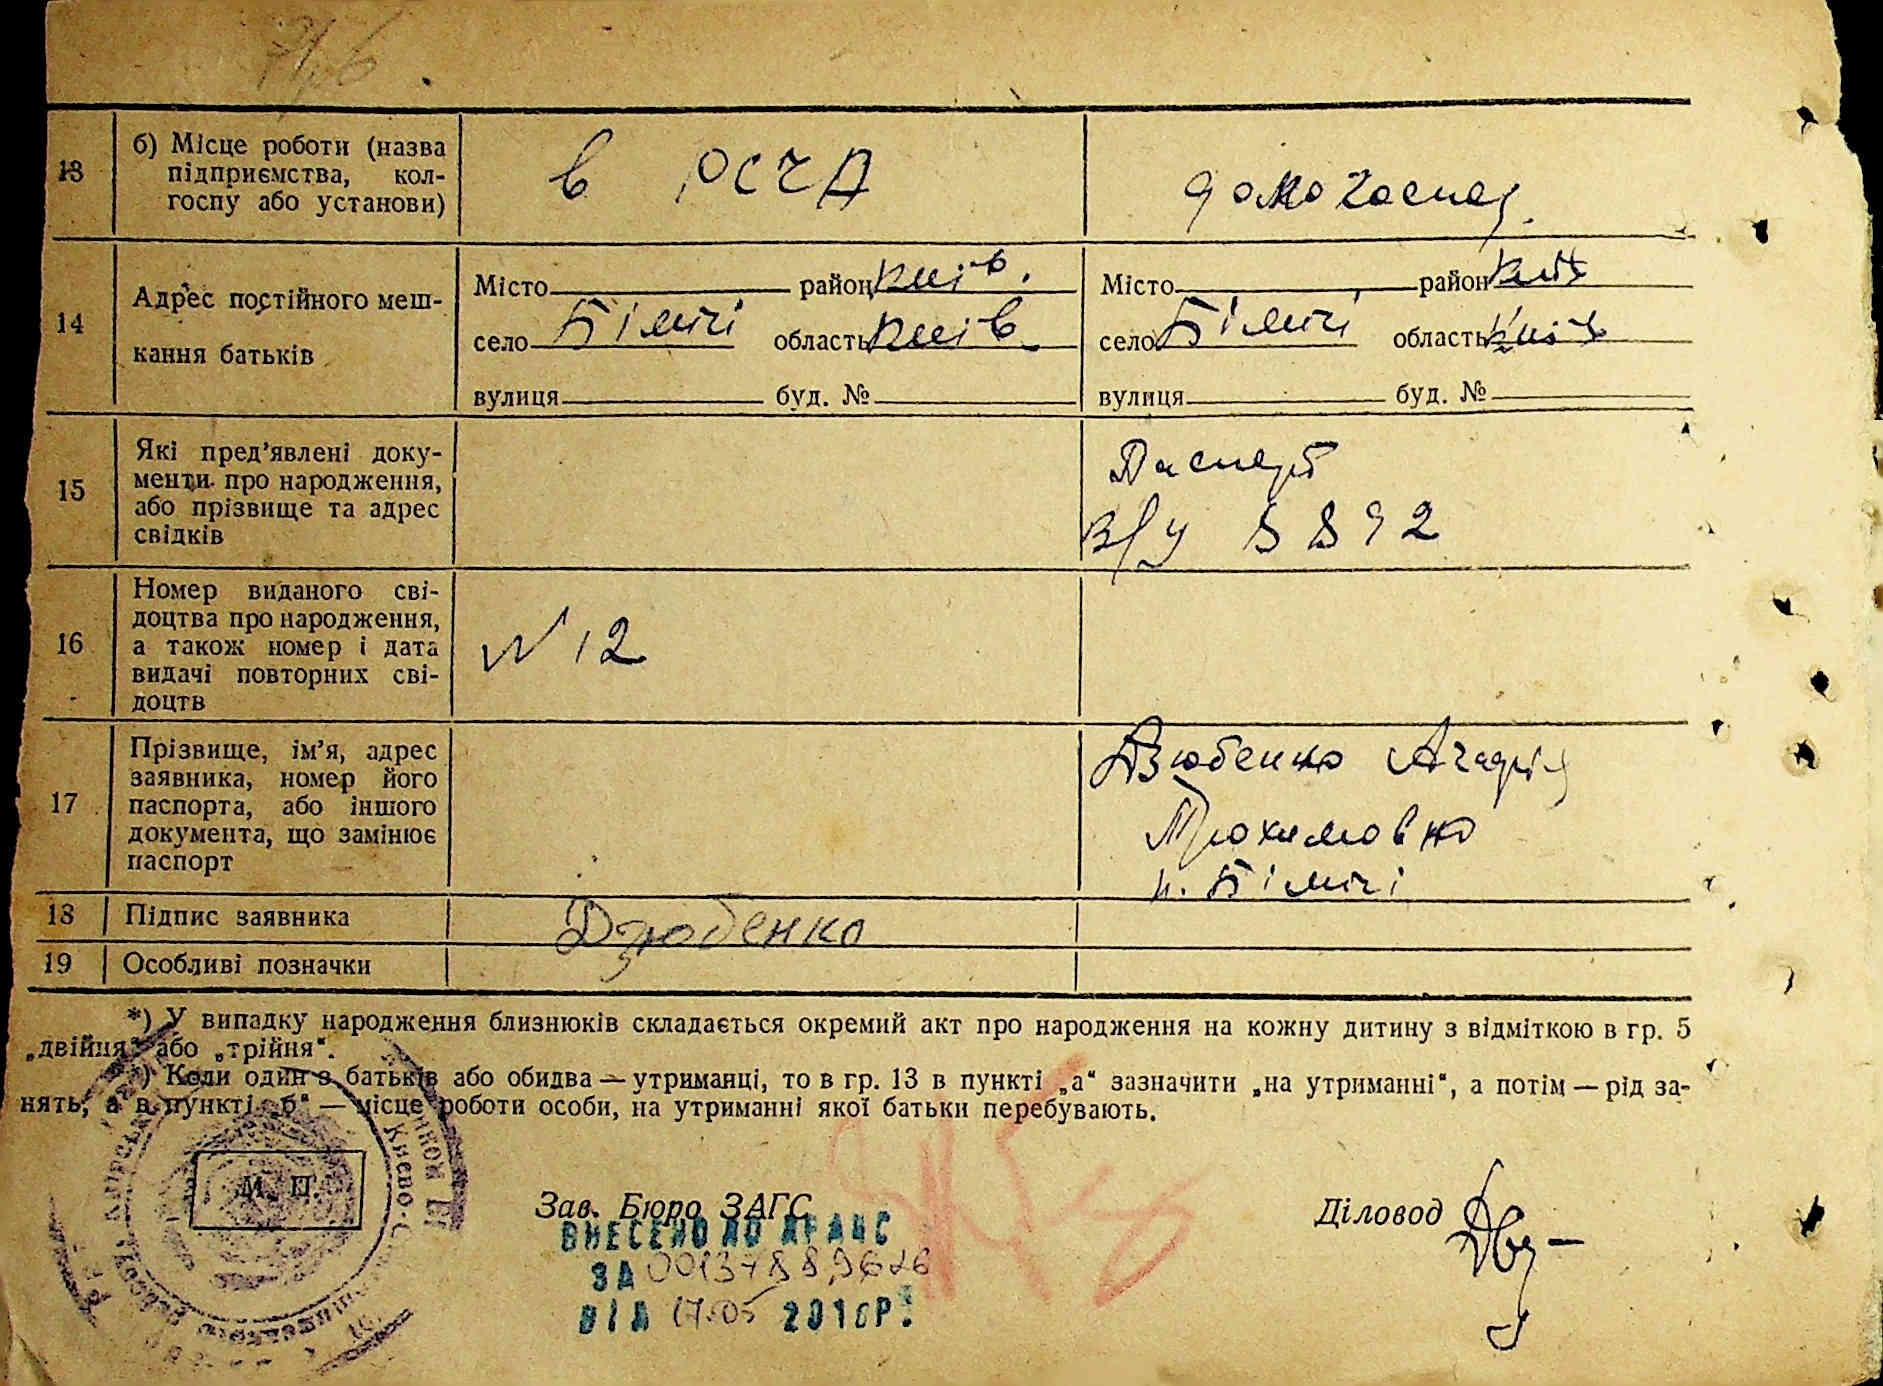 13
б) Місце роботи (назва
підприємства, кол-
госпу або установи)
в РСЧА
домогоспод.
14
Адрес постійного меш-
кання батьків
Місто район Київ.
село Біличі область Київ.
вулиця буд. №
Місто район Київ
село Біличі область Київ
вулиця буд. №
15
Які пред’явлені доку-
менти про народження,
або прізвище та адрес
свідків
Паспорт
8892
16
Номер виданого сві-
доцтва про народження,
а також номер і дата
видачі повторних сві-
доцтв
N 12
17
Прізвище, ім’я, адрес
заявника, номер його
паспорта, або іншого
документа, що замінює
паспорт
Дзюбенко
Біличі
18
Підпис заявника
Дзюбенко
19
Особливі позначки
*) У випадку народження близнюків складається окремий акт про народження на кожну дитину з відміткою в гр. 5
„двійня“ або „трійня“.
*) Коли один з батьків або обидва — утриманці, то в гр. 13 в пункті „а“ зазначити „на утриманні“, а потім — рід за-
нять, а в пункті „б“ — місце роботи особи, на утриманні якої батьки перебувають.
М. П.
Зав. Бюро ЗАГС
Діловод
ВНЕСЕНО ДО ДРАЦС
ЗА
ВІД 17.05 2016Р.